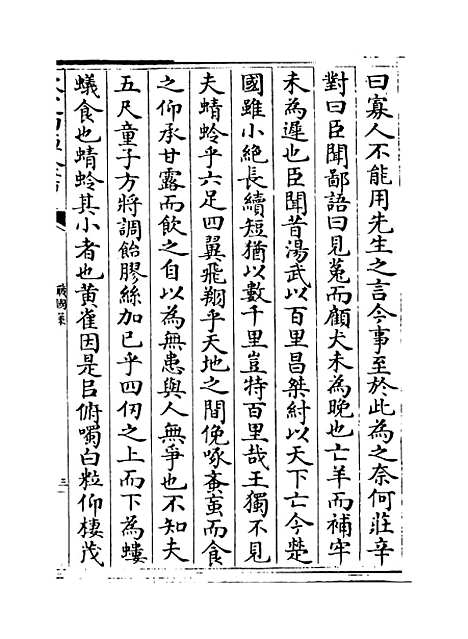 曰寡人不能用先生之言今事至於此為之奈何莊辛
對曰臣聞鄙語曰見菟而顧犬未為晚也亡羊而補牢
未為遲也臣聞昔湯武以百里昌桀紂以天下亡今楚
國雖小絶長續短猶以數千里豈特百里哉王獨不見
夫蜻蛉乎六足四翼飛翔乎天地之間俛啄蚉䖟而食
之仰承甘露而飲之自以為無患與人無爭也不知夫
五尺童子方將調飴膠絲加已乎四仞之上而下為螻
蟻食也蜻蛉其小者也黄雀因是㠯俯噣白粒仰棲茂
戰國策
三